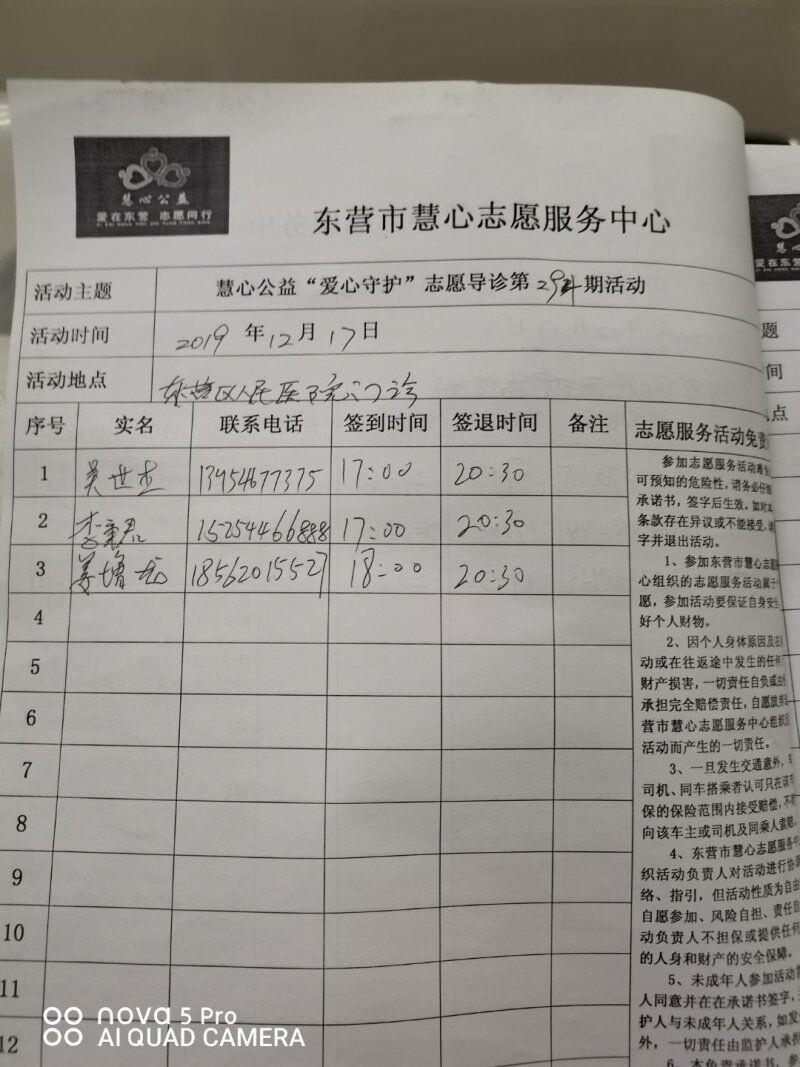 慧心公益
爱在东营 志愿同行
AI ZAI DONG YING ZHI YUAN TONG XING
东营市慧心志愿服务中心
活动主题 慧心公益“爱心守护”志愿导诊第 期活动
活动时间 2019 年 12 月 17 日
活动地点 东营区人民医院门诊
序号 实名 联系电话 签到时间 签退时间 备注 志愿服务活动免责
1 吴世杰 13954677375 17:00 20:30
2 李秉君 15254466888 17:00 20:30
3 姜增龙 18562015527 18:00 20:30
4
5
6
7
8
9
10
11
12
参加志愿服务活动难免
可预知的危险性,请务必仔细
承诺书,签字后生效。如对本
条款存在异议或不能接受,请
字并退出活动。
1、参加东营市慧心志愿
心组织的志愿服务活动属于
愿,参加活动要保证自身安全
好个人财物。
2、因个人身体原因及在
动或在往返途中发生的任何
财产损害,一切责任自负或由
承担完全赔偿责任,自愿放弃
营市慧心志愿服务中心组织
活动而产生的一切责任。
3、一旦发生交通意外,
司机、同车搭乘者认可只在该车
保的保险范围内接受赔偿,不
向该车主或司机及同乘人索赔。
4、东营市慧心志愿服务中
织活动负责人对活动进行协调
络、指引,但活动性质为自由
自愿参加、风险自担、责任自
动负责人不担保或提供任何
的人身和财产的安全保障。
5、未成年人参加活动
人同意并在在承诺书签字,
护人与未成年人关系,如发
外,一切责任由监护人承担
6、本免责承诺书,参
题
间
点
nova 5 Pro
AI QUAD CAMERA